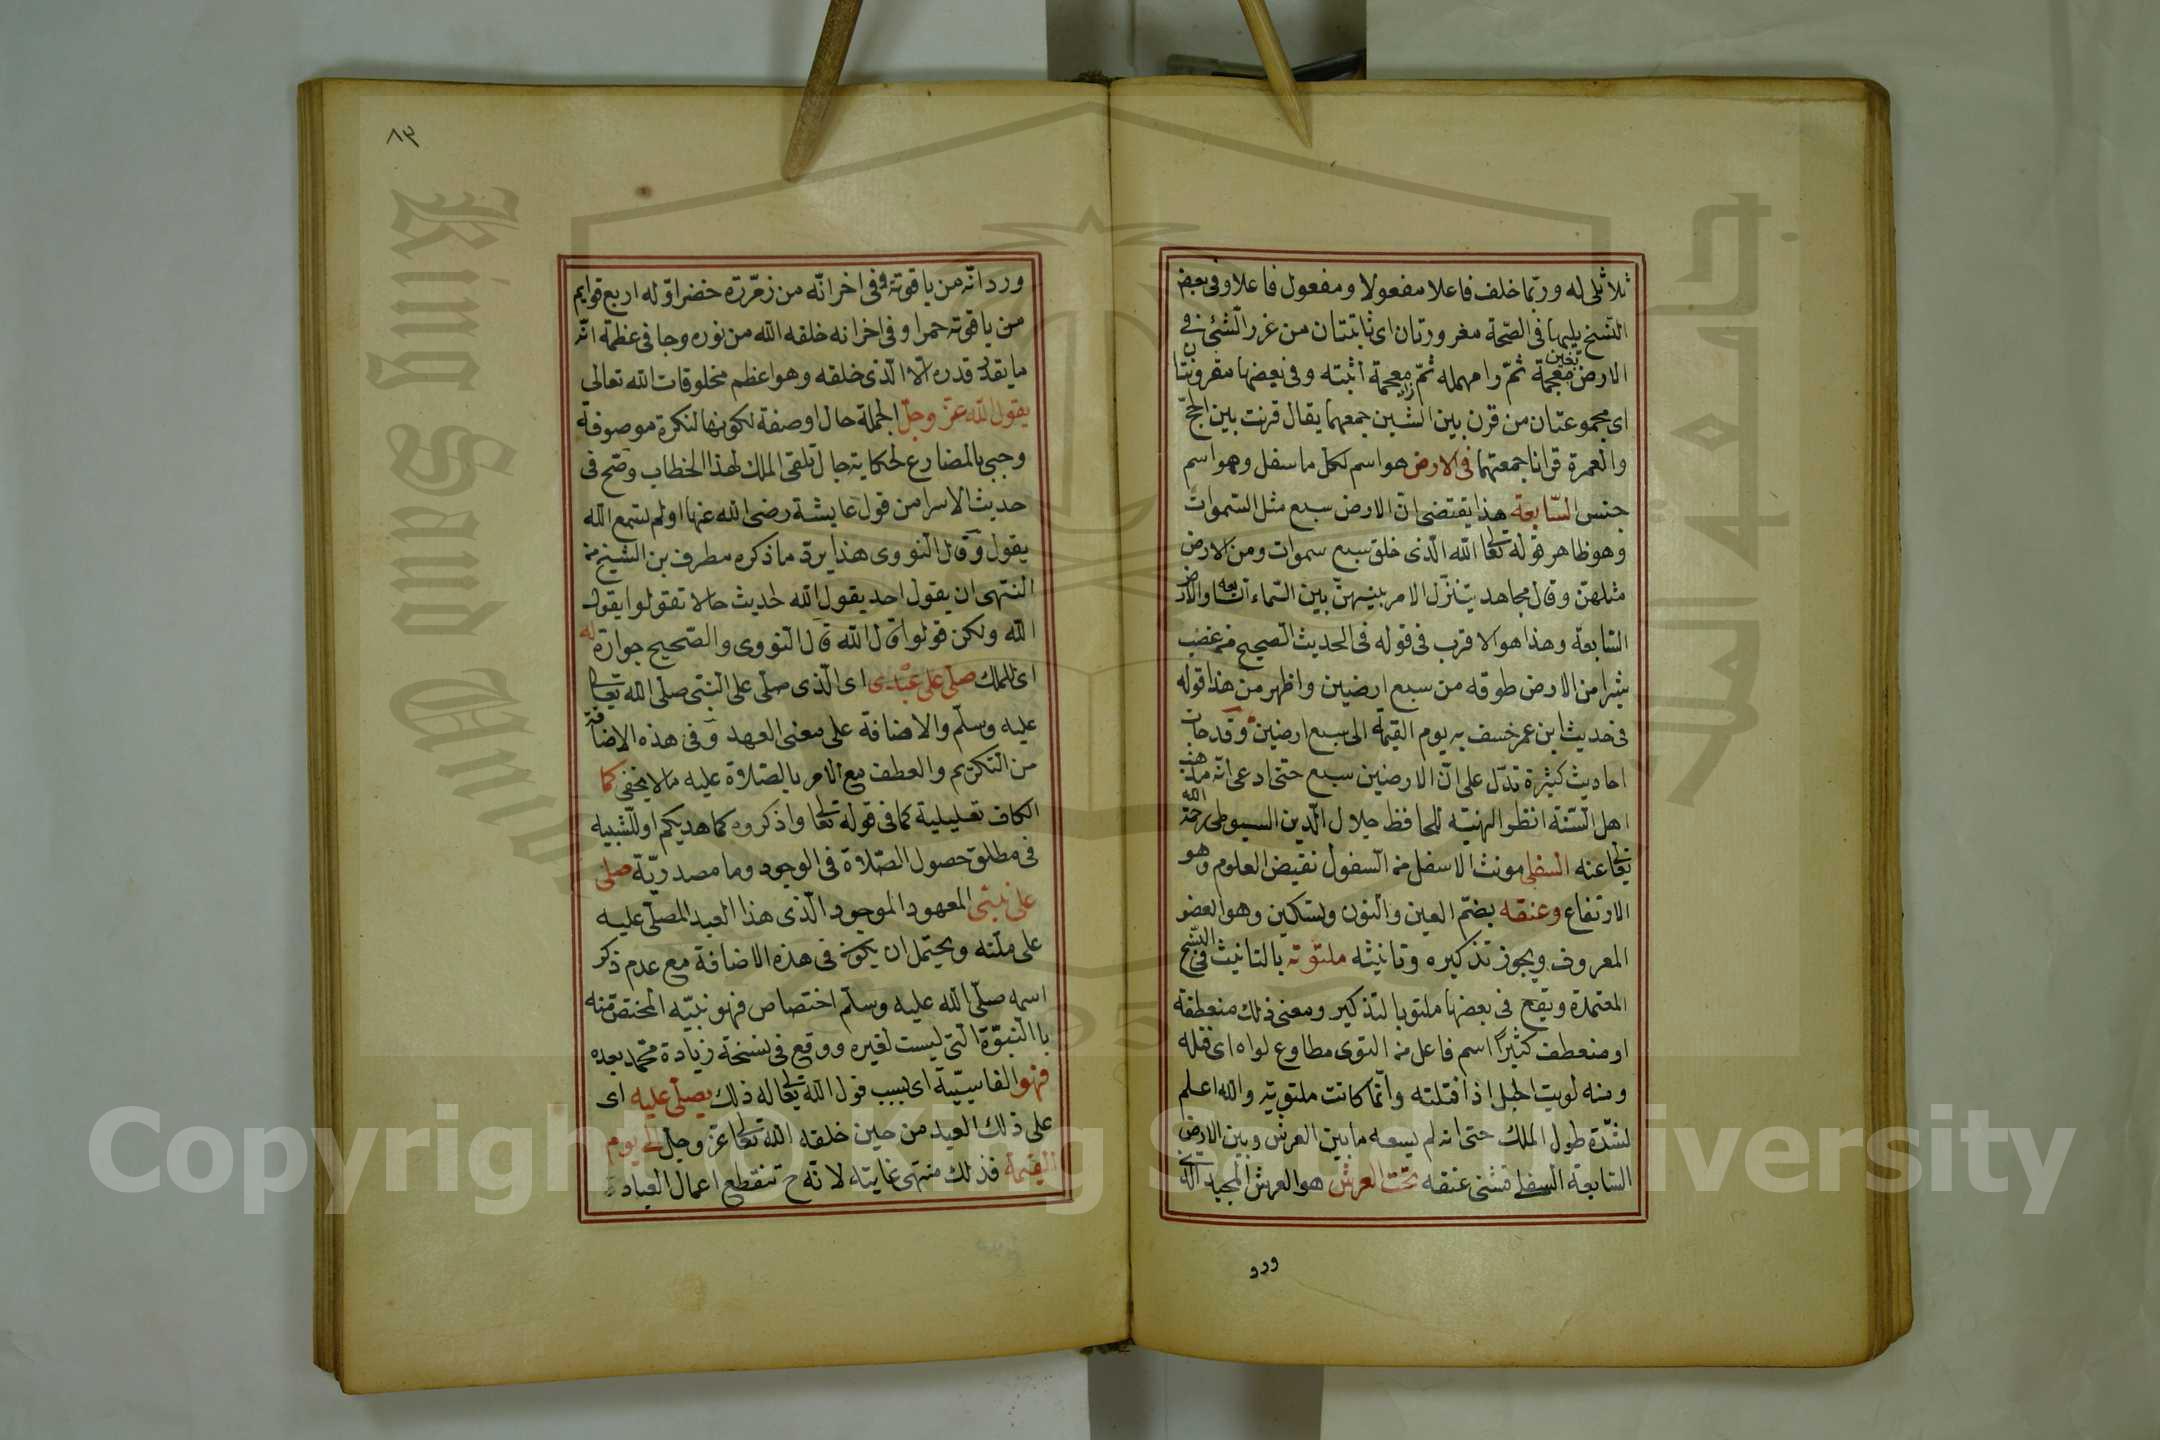 ثلاثي له وربما خلف فاعلا مفعولا ومفعول فاعلا وفي بعض
النسخ يليها في الصحة مغروزتان اى ثابتتان من غرز الشئ في
الارض بغين معجمة ثم را مهمله ثم زاى معجمة أثبته وفي بعضها مقرونتان
اى مجموعتان من قرن بين الشيين جمعهما يقال قرنت بين الحج
والعمرة قرانا جمعتهما في الارض هو اسم لكل ما سفل وهو اسم
جنس السابعة هذا يقتضى ان الارض سبع مثل السموات
وهو ظاهر قوله تعالى الله الذى خلق سبع سموات ومن الارض
مثلهن وقال مجاهد يتنزل الامر بينهن بين السماء السابعة والارض
السابعة وهذا هو الاقرب في قوله في الحديث الصحيح من غصب
شبرا من الارض طوقه من سبع ارضين واظهر من هذا قوله
في حديث ابن عمر خسف به يوم القيمة الى سبع ارضين وقد جات
احاديث كثيرة تدل على ان الارضين سبع حتى ادعى انه مذهب
اهل السنة انظر الهيئة للحافظ جلال الدين السيوطى رحمة الله
تعالى عنه السفلى مونث الاسفل من السفول نقيض العلو وهو
الارتفاع وعنقه بضم العين والنون وبسكين وهو العضو
المعروف ويجوز تذكيره وتانيثه ملتوته بالتانيث في النسخ
المعتمدة ويقع في بعضها ملتو بالتذكير ومعنى ذلك منعطفة
او منعطف كثيرا اسم فاعل من التوى مطاوع لواه اى فتله
ومنه لويت الحبل اذا فتلته وانما كانت ملتوية والله اعلم
لشدة طول الملك حتى انه لم يسعه ما بين العرش وبين الارض
السابعة السفلى فثنى عنقه تحت العرش هو العرش المجيد الذى
ورد
٨٣
ورد انه من ياقوتة وفي اخر انه من زمردة خضرا وله اربع قوايم
من ياقوته حمرا وفي اخر انه خلقه الله من نوره وجا في عظمه انه
ما يقدر قدره الا الذى خلقه وهو اعظم مخلوقات الله تعالى
يقول الله عز وجل الجملة حال او صفة لكونها لنكرة موصوفة
وجيى بالمضارع لحكاية حال تلقى الملك لهذا الخطاب وصح في
حديث الاسرا من قول عايشة رضى الله عنها اولم تسمع الله
يقول وقال النووى هذا يرد ما ذكره مطرف بن الشخير من
النهى ان يقول احد يقول الله لحديث لا تقولوا يقول
الله ولكن قولوا قال الله قال النووى والصحيح جوازه له
اى للملك صلى على عبدى اى الذى صلى على النبى صلى الله تعالى
عليه وسلم والاضافة على معنى العهد وفى هذه الاضافة
من التكريم والعطف مع الامر بالصلاة عليه ما لا يخفى كما
الكاف تعليلية كما في قوله تعالى واذكروه كما هديكم او للتشبيه
في مطلق حصول الصلاة في الوجود وما مصدرية صلى
على نبيى المعهود الموجود الذى هذا العبد المصلى عليه
على ملته ويحتمل ان يكون في هذه الاضافة مع عدم ذكر
اسمه صلى الله عليه وسلم اختصاص فهو نبيه المختص منه
باالنبوة التى ليست لغيره ووقع في نسخة زيادة محمد بعده
فهو الفاسببية اى بسبب قول الله تعالى له ذلك يصلى عليه اى
على ذلك العبد من حين خلقه الله تعالى عز وجل الى يوم
القيمة فذلك منتهى غايته لانه ح تنقطع اعمال العباد
King Saud University
Copyright © King Saud University